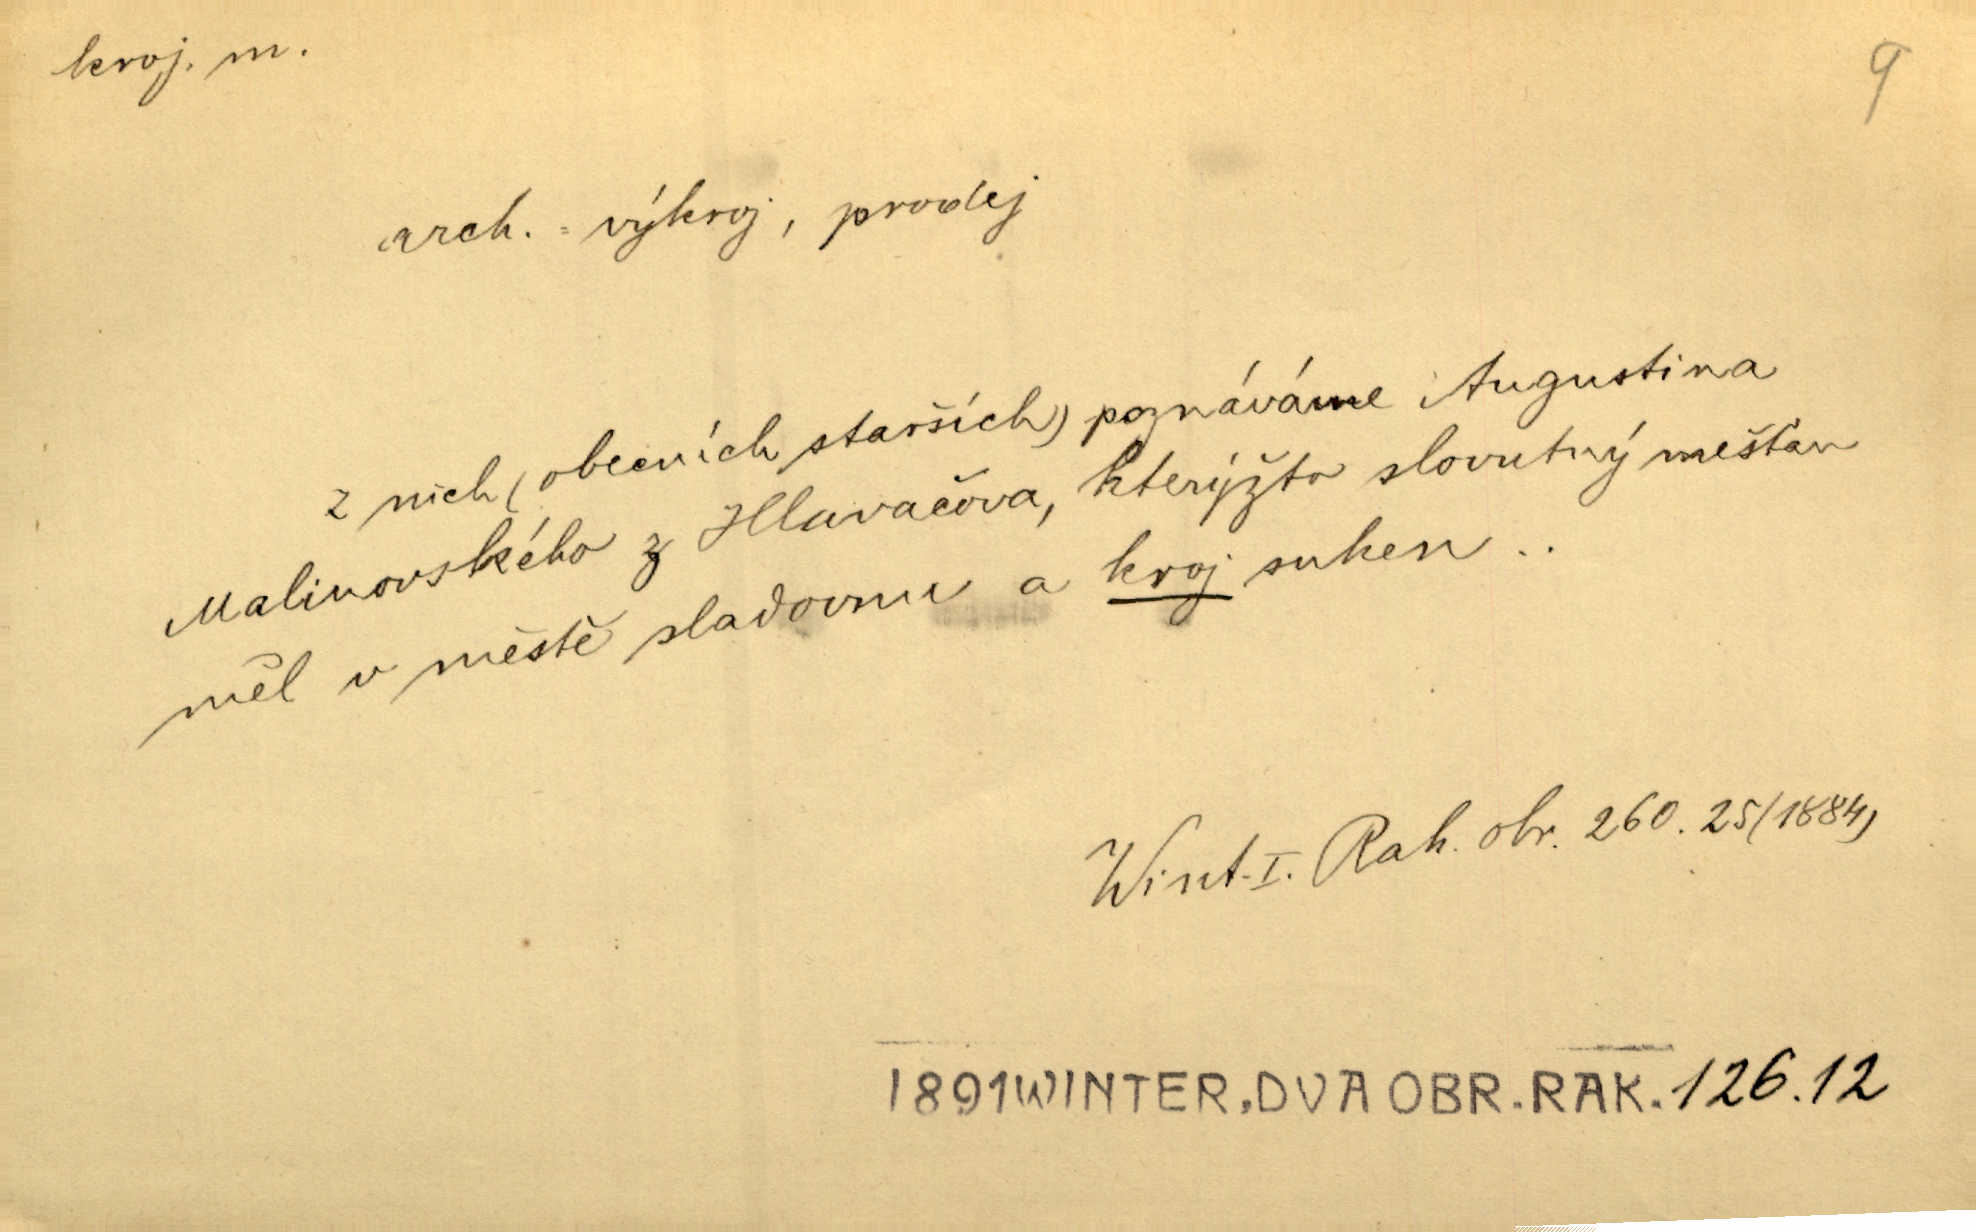 kroj. m.
9
arch. = výkroj, prodej
z nich (obecních starších) poznáváme Augustina
Malinovského z Hlavačova, kterýžto slovutný měšťan
měl v městě sladovnu a kroj suken ..
Wint. I. Rak. obr. 260. 25 (1884)
1891 WINTER, DVA OBR. RAK. 126.12